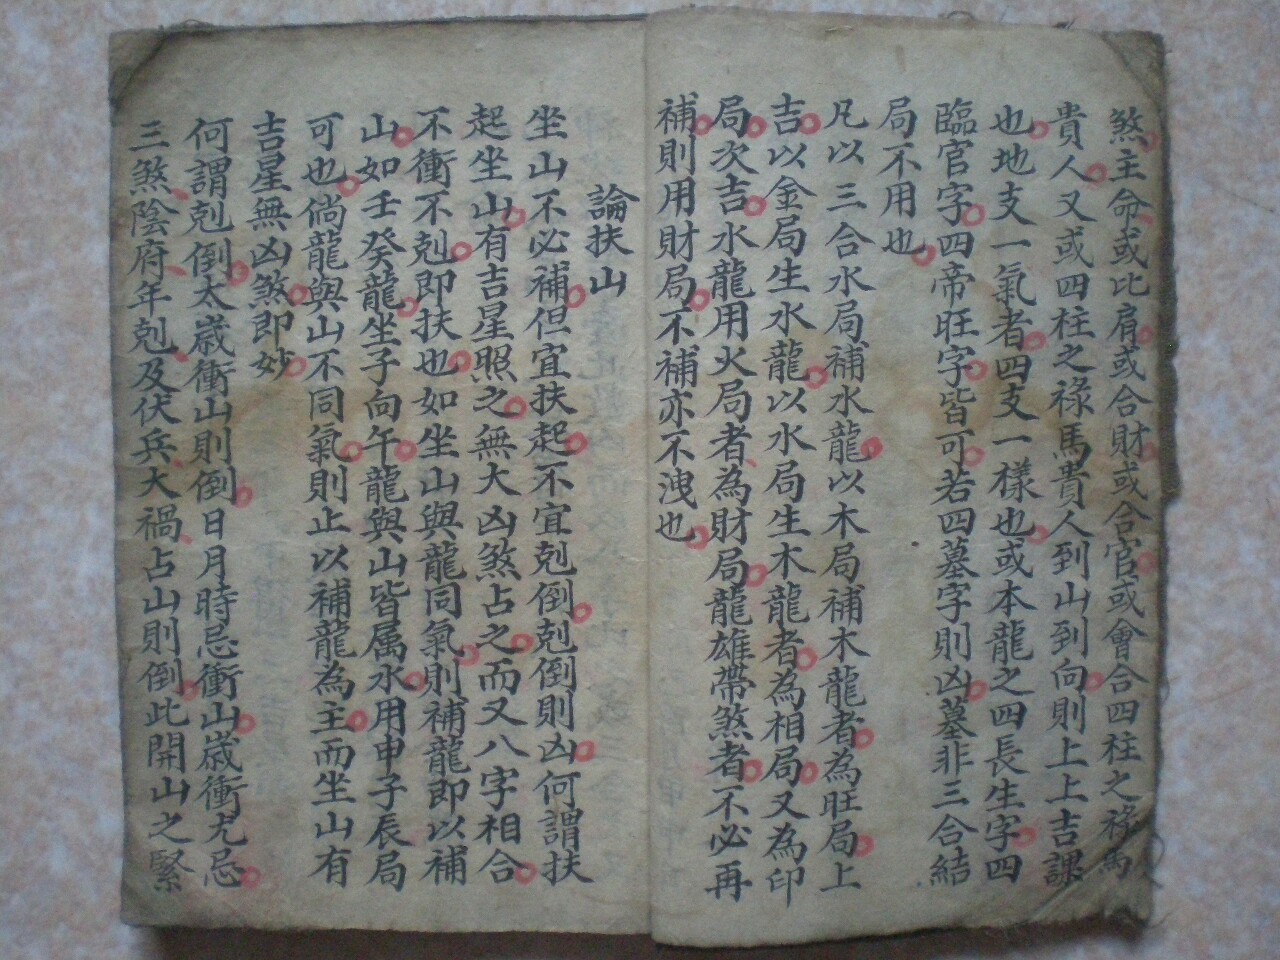 煞主命或比肩或合財或合官或會合四柱之祿馬
貴人又或四柱之祿馬貴人到山到向則上上吉課
也地支一氣者四支一樣也或本龍之四長生字四
臨官字四帝旺字皆可若四墓字則凶墓非三合結
局不用也
凡以三合水局補水龍以木局補木龍者為旺局上
吉以金局生水龍以水局生木龍者為相局又為印
局次吉水龍用火局者為財局龍雄帶煞者不必再
補則用財局不補亦不洩也
論扶山
坐山不必補但宜扶起不宜剋倒剋倒則凶何謂扶
起坐山有吉星照之無大凶煞占之而又八字相合
不衝不剋即扶也如坐山與龍同氣則補龍即以補
山如壬癸龍坐子向午龍與山皆属水用申子辰局
可也倘龍與山不同氣則止以補龍為主而坐山有
吉星無凶煞即妙
何謂剋倒太歲衝山則倒日月時忌衝山歲衝尤忌
三煞陰府年剋及伏兵大禍占山則倒此開山之緊